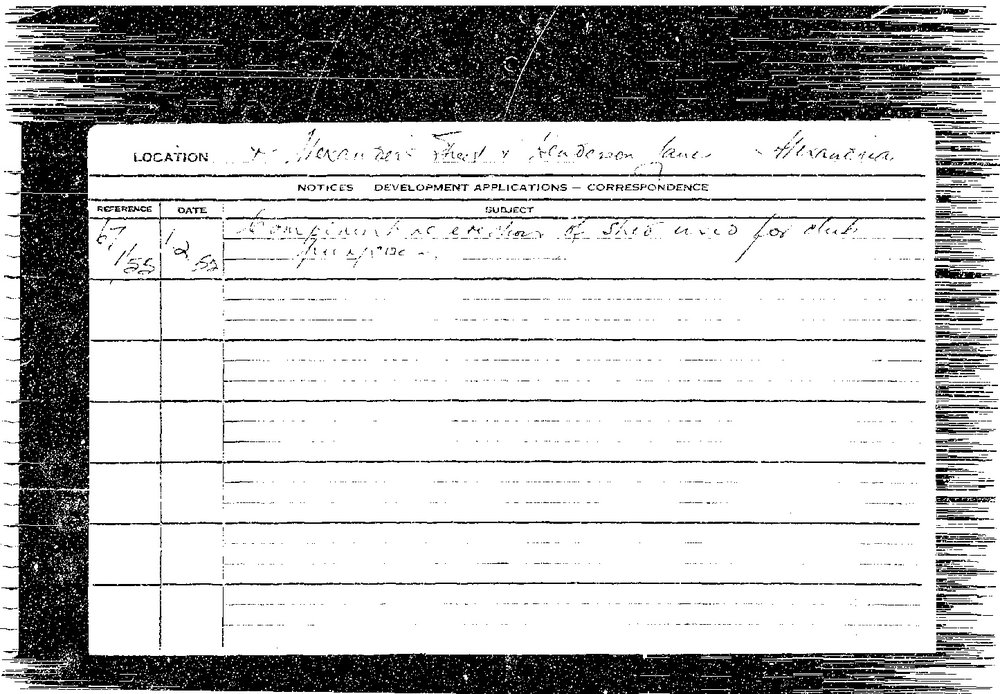 LOCATION Alexander Street & Henderson Lane - Alexandria
NOTICES DEVELOPMENT APPLICATIONS — CORRESPONDENCE
REFERENCE DATE SUBJECT
67/55 1 2 Complaint re erection of shed used for club
purposes.